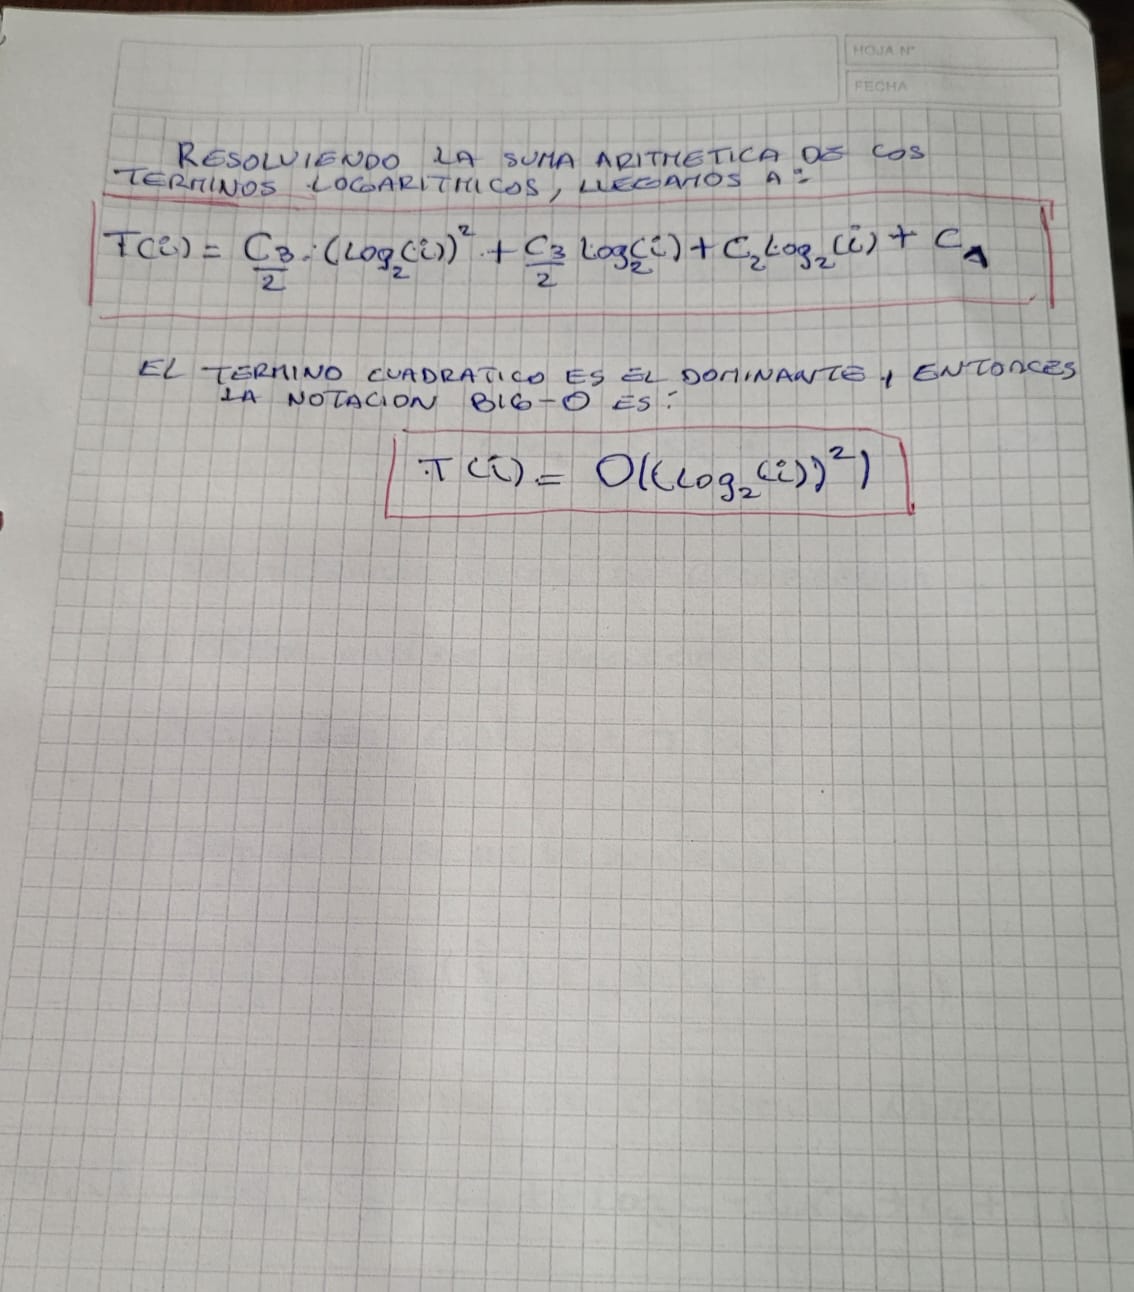 HOJA N°
FECHA
RESOLVIENDO LA SUMA ARITMETICA DE LOS
TERMINOS LOGARITMICOS, LLEGAMOS A:
T(i) = C₃/2 · (Log₂(i))² + C₃/2 Log₂(i) + C₂Log₂(i) + C₁
EL TERMINO CUADRATICO ES EL DOMINANTE, ENTONCES
LA NOTACION BIG-O ES:
T(i) = O((Log₂(i))²)